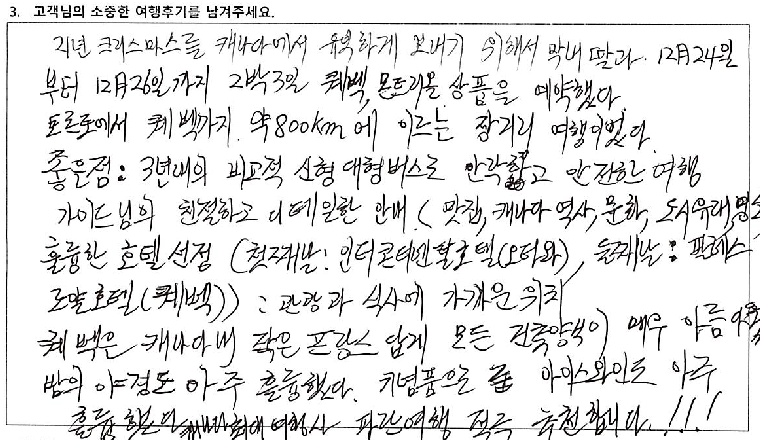 3. 고객님의 소중한 여행후기를 남겨주세요.
지년 크리스마스를 캐나다에서 유익하게 보내기 위해서 막내 딸과 12月24일
부터 12月26일까지 2박3일 퀘벡, 몬트리올 상품을 예약했다.
토론토에서 퀘벡까지 약800km에 이르는 장거리 여행이었다.
좋은점: 3년내의 비교적 신형 대형버스로 안락하고 안전한 여행
가이드님의 친절하고 디테일한 안내 (맛집, 캐나다 역사, 문화, 도시유래, 명소
훌륭한 호텔 선정 (첫째날: 인터콘티넨탈호텔(오타와), 둘째날: 팔레스
로얄호텔(퀘벡)) : 관광과 식사에 가까운 위치
퀘벡은 캐나다내 작은 프랑스 답게 모든 건축양식이 매우 아름
밤의 야경도 아주 훌륭했다. 기념품으로 아이스와인도 아주
여행사 파란여행 적극 추천합니다.!!!